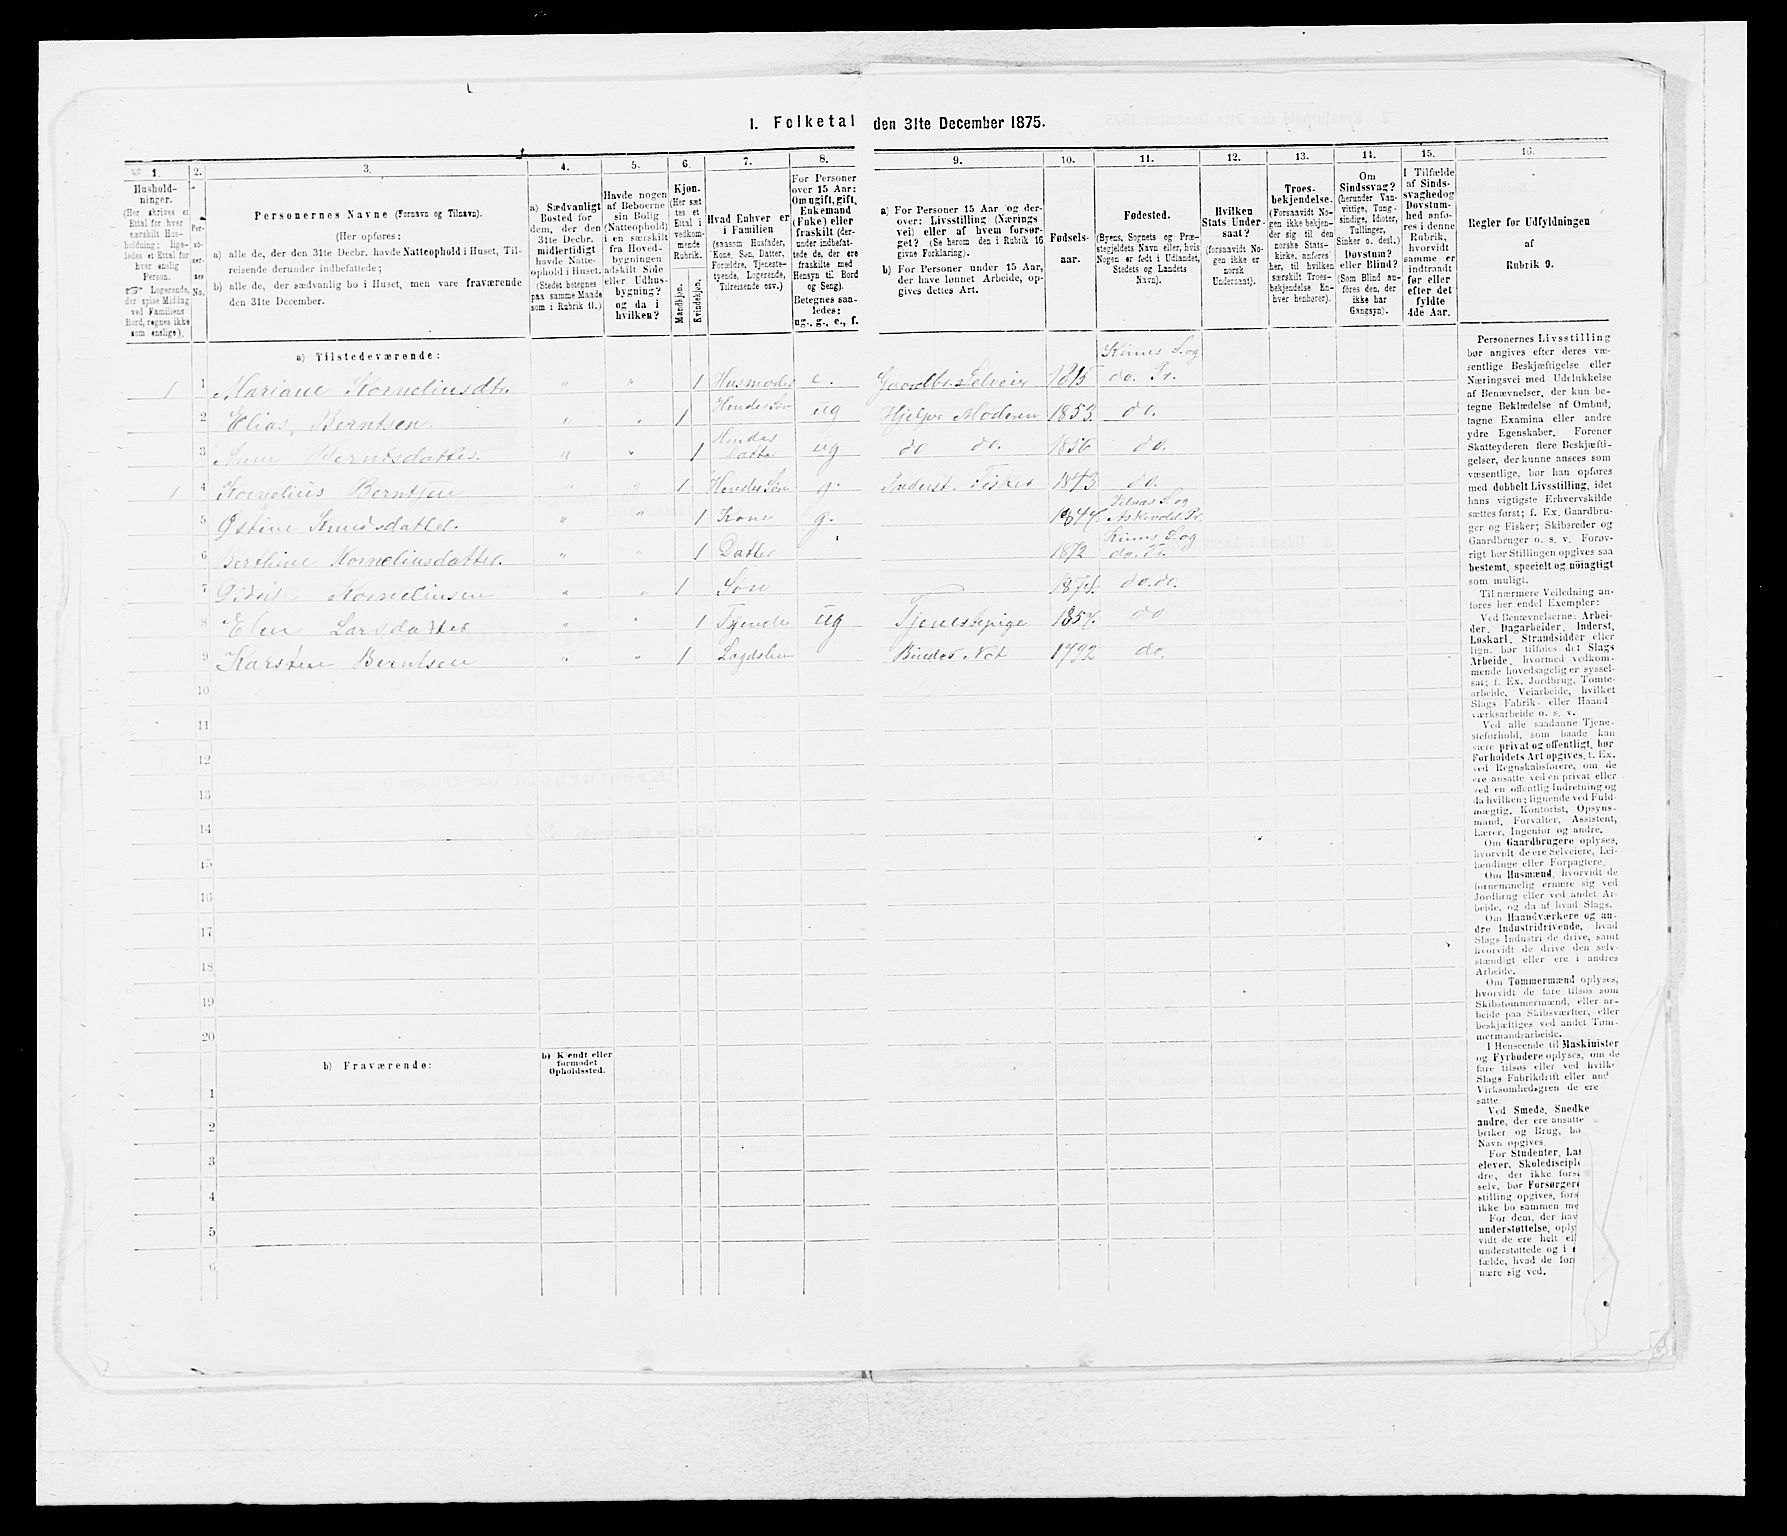 1. Folketal den 31te December 1875.
1.
Hushold-
ninger.
(Her skrives et
Ettal for hver
særskilt Hus-
holdning; lige-
ledes et Ettal for
hver enslig
Person.
☞ Logerende,
der spise Middag
ved Familiens
Bord, regnes ikke
som enslige).
2.
Per-
so-
ner-
nes
No.
3.
Personernes Navne (Fornavn og Tilnavn).
(Her opføres:
a) alle de, der den 31te Decbr. havde Natteophold i Huset, Til-
reisende derunder indbefattede;
b) alle de, der sædvanlig bo i Huset, men vare fraværende
den 31te December.
4.
a) Sædvanligt
Bosted for
dem, der den
31te Decbr.
midlertidigt
havde Natte-
ophold i Huset.
(Stedet betegnes
paa samme Maade
som i Rubrik 11.)
5.
Havde nogen
af Beboerne
sin Bolig
(Natteophold)
i en særskilt
fra Hoved-
bygningen
adskilt Side
eller Udhus-
bygning?
og da i
hvilken?
6.
Kjøn.
(Her sæt
tes et
Ettal i
vedkom-
mende
Rubrik.
Mandkjøn.
Kvindekjøn.
7.
Hvad Enhver er
i Familien
(saasom Husfader,
Kone, Søn, Datter,
Forældre, Tjeneste-
tyende, Logerende,
Tilreisende osv.)
8.
For Personer
over 15 Aar:
Om ugift, gift,
Enkemand
(Enke) eller
fraskilt (der-
under indbefat-
tede de, der ere
fraskilte med
Hensyn til Bord
og Seng).
Betegnes saa-
ledes:
ug., g., e., f.
9.
a) For Personer 15 Aar og der-
over: Livsstilling (Nærings
vei) eller af hvem forsør-
get? (Se herom den i Rubrik 16
givne Forklaring).
b) For Personer under 15 Aar,
der have lønnet Arbeide, op-
gives dettes Art.
10.
Fødsels-
aar.
11.
Fødested.
(Byens, Sognets og Præ-
stegjeldets Navn eller, hvis
Nogen er født i Udlandet,
Stedets og Landets
Navn).
12.
Hvilken
Stats Under-
saat?
(forsaavidt No-
gen ikke er
norsk
Undersaat).
13.
Troes-
bekjendelse.
(Forsaavidt No-
gen ikke bekjen-
der sig til den
norske Stats-
kirke, anføres
her, til hvilken
særskilt Troes-
bekjendelse En-
hver henhører).
14.
Om
Sindssvag?
(herunder Van-
vittige, Tung-
sindige, Idioter,
Tullinger,
Sinker o. desl.)
Døvstum?
eller Blind?
(Som Blind an-
føres den, der
ikke har
Gangsyn).
15.
I Tilfælde
af Sinds-
svaghedog
Døvstum-
hed anfø-
res i denne
Rubrik,
hvorvidt
samme er
indtraadt
før eller
efter det
fyldte
4de Aar.
16.
Regler før Udfyldningen
af
Rubrik 9.
a) Tilstedeværende:
1 1 Mariane Korneliusdtr. " " 1 Husmoder e. Gaardbr. Selveier 1815 Kinns S. og do. Pr.
2 Elias Berntsen " " 1 Hendes Søn ug Hjelper Moderen 1853 do.
3 Anne Berntsdatter " " 1 Hendes Datter ug do do. 1856 do.
1 4 Kornelius Berntsen " " 1 Hendes Søn g. Inderst. Fisker 1843 do.
5 Østine Knudsdatter " " 1 Kone g. 1847. S. og Askevold Pr.
6 Berthine Korneliusdatter. " " 1 Datter 1872 Kinns S. og do. Pr.
7 Korneliusen " " 1 Søn 1874. do. do.
8 Elen Larsdatter " " 1 Tyende ug Tjenestepige 1857. do
9 Karsten Berntsen " " 1 Lægdslem Binder Not 1792 do.
10
11
12
13
14
15
16
17
18
19
20
b) Fraværende:
b) Kjendt eller
formodet
Opholdssted.
1
2
3
4
5
6
Personernes Livsstilling
bør angives efter deres væ-
sentlige Beskjæftigelse eller
Næringsvei med Udelukkelse
af Benævnelser, der kun be-
tegne Beklædelse af Ombud,
tagne Examina eller andre
ydre Egenskaber. Forener
Skatteyderen flere Beskjæfti-
gelser, der kunne ansees som
væsentlige, bør han opføres
med dobbelt Livsstilling, idet
hans vigtigste Erhvervskilde
sættes først; f. Ex. Gaardbru-
ger og Fisker; Skibsreder og
Gaardbruger o. s. v. Forøv-
rigt bør Stillingen opgives saa
bestemt, specielt og nøiagtigt
som muligt.
Til nærmere Veiledning an-
føres her endel Exempler:
Ved Benævnelserne: Arbei-
der, Dagarbeider, Inderst,
Løskarl, Strandsidder eller
lign. bør tilføies det Slags
Arbeide, hvormed vedkom-
mende hovedsagelig er syssel-
sat; f. Ex. Jordbrug, Tømte-
arbeide, Veiarbeide, hvilket
Slags Fabrik- eller Haand
værksarbeide o. s. v.
Ved alle saadanne Tjene-
steforhold, som baade kan
være privat og offentligt, bør
Forholdets Art opgives, t. Ex.
ved Regnskabsførere, om de
ere ansatte ved en privat eller
ved en offentlig Indretning og
da hvilken; lignende ved Fuld-
mægtig, Kontorist, Opsyns-
mand, Forvalter, Assistent,
Lærer, Ingeniør og andre.
Om Gaardbrugere oplyses,
hvorvidt de ere Selveiere, Lei-
lændinge eller Forpagtere.
Om Husmænd, hvorvidt de
fornemmelig ernære sig ved
Jordbrug eller ved andet Ar-
beide, og da af hvad Slags.
Om Haandværkere og an-
dre Industridrivende, hvad
Slags Industri de drive, samt
hvorvidt de drive den selv-
stændigt eller ere i andres
Arbeide.
Om Tømmermænd oplyses,
hvorvidt de fare tilsøs som
Skibstømmermænd, eller ar-
beide paa Skibsværfter, eller
beskjæftiges ved andet Tøm-
mermandsarbeide.
I Henseende til Maskinister
og Fyrbødere oplyses, om de
fare tilsøs eller ved hvilk-
Slags Fabrikdrift eller and
Virksomhedsgren de ere
satte
Ved Smede, Snedke
andre, der ere ansatte
briker og Brug, bø
Navn opgives.
For Studenter, Lan
elever, Skoledisciple
dre, der ikke forsø
selv, bør Forsørgere
stilling opgives, fors
ikke bo sammen me
For dem, der hav
understøttelse, oply
vidt de ere helt el
understøttede og i
fælde, hvad de for
nære sig ved.